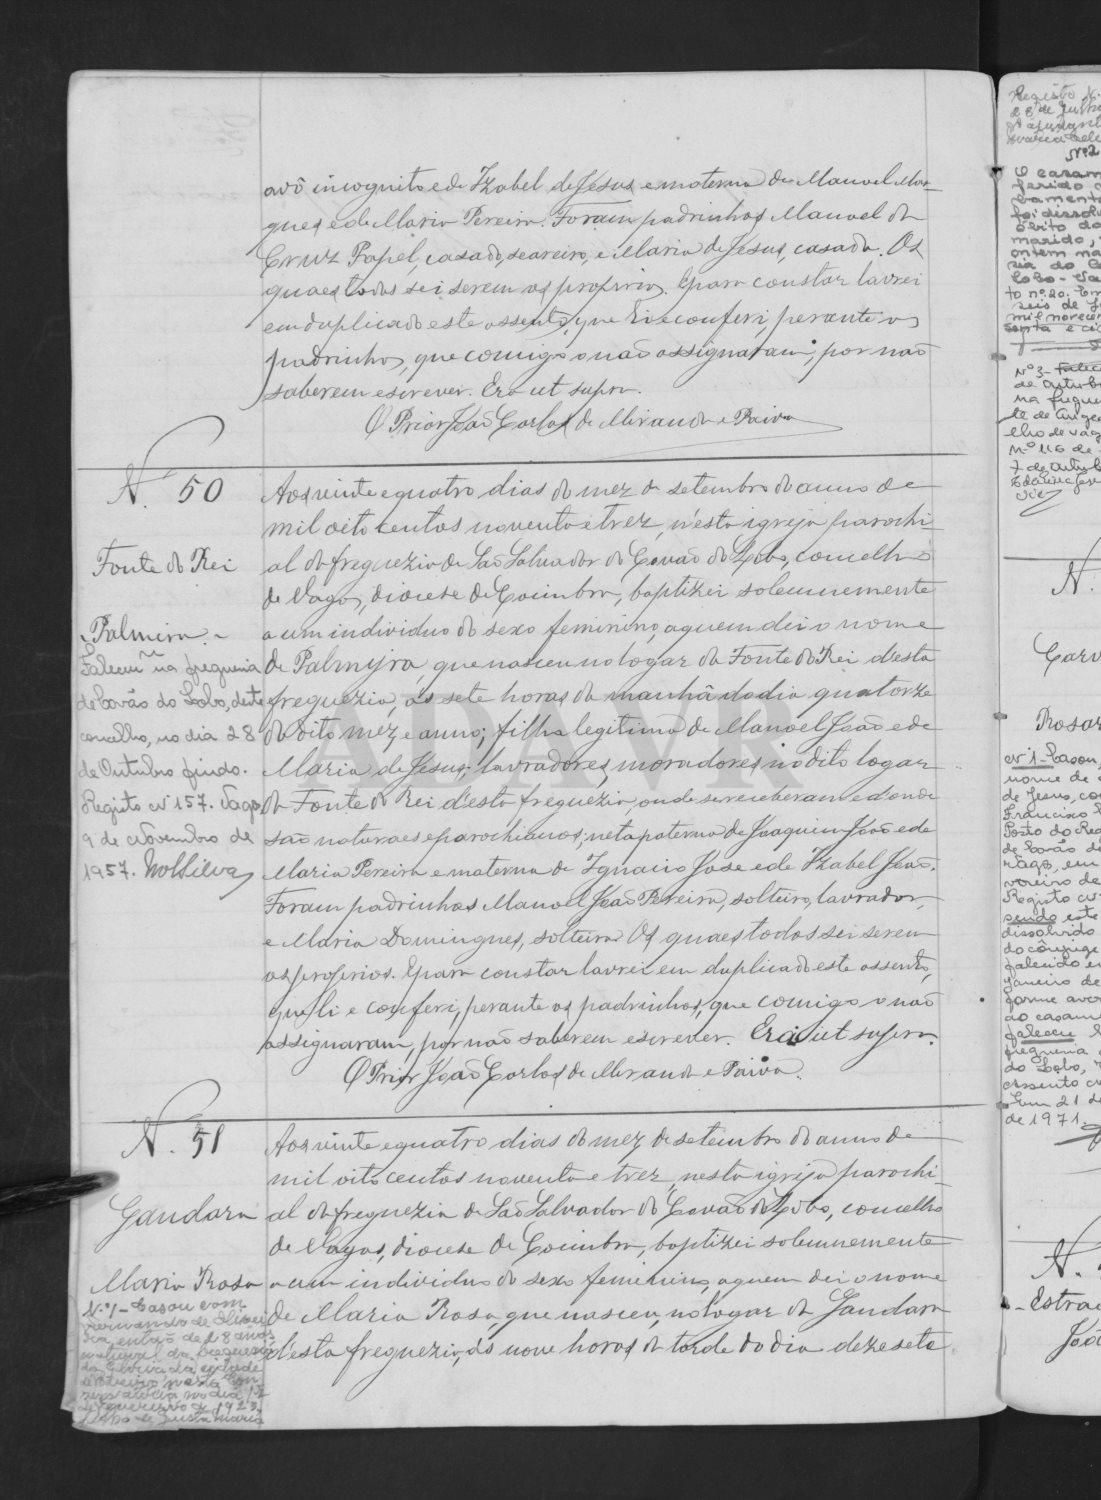 avô incognito e de Izabel de Jesus e materna de Manoel Mar-
ques e de Maria Pereira. Foram padrinhos Manoel da
Cruz Papel, casado, seareiro, e Maria de Jesus, casada. Os
quaes todos sei serem os proprios. E para constar lavrei
em duplicado este assento, que li e conferi, perante os
padrinhos, que comigo o não assignaram, por não
saberem escrever. Era ut supra.
O Prior João Carlos de Miranda e Paiva
N. 50
Fonte do Rei
Palmira
Faleceu na freguesia
de Covão do Lobo, deste
concelho, no dia 28
de Outubro findo.
Registo nº 157. Vagos,
9 de Novembro de
1957.
Aos vinte e quatro dias do mez de setembro do anno de
mil oito centos noventa e trez, n'esta igreja parochi-
al da freguezia de São Salvador do Covão do Lobo, concelho
de Vagos, diocese de Coimbra, baptizei solemnemente
a um individuo do sexo feminino, a quem dei o nome
de Palmyra, que nasceu no logar da Fonte do Rei d'esta
freguezia, ás sete horas da manhã do dia quatorze
do dito mez e anno; filha legitima de Manoel João e de
Maria de Jesus, lavradores, moradores no dito logar
da Fonte do Rei d'esta freguezia, onde se receberam e d'onde
são naturaes e parochianos; neta paterna de Joaquim João e de
Maria Pereira e materna de Ignacio José e de Izabel João.
Foram padrinhos Manoel João Pereira, solteiro, lavrador,
e Maria Domingues, solteira. Os quaes todos sei serem
os proprios. E para constar lavrei em duplicado este assento,
que li e conferi, perante os padrinhos, que comigo o não
assignaram, por não saberem escrever. Era ut supra.
O Prior João Carlos de Miranda e Paiva.
N. 51
Gandara
Maria Rosa
Nº 1 - Casou com
Fernando de Olivei
ra, então de 28 anos,
natural da freguesia
da Gloria da cidade
de Aveiro, nesta Con
servatoria no dia 12
de Fevereiro de 1923.
Aos vinte e quatro dias do mez de setembro do anno de
mil oito centos noventa e trez, nesta igreja parochi-
al da freguezia de São Salvador do Covão do Lobo, concelho
de Vagos, diocese de Coimbra, baptizei solemnemente
a um individuo do sexo feminino, a quem dei o nome
de Maria Rosa, que nasceu, no logar da Gandara
d'esta freguezia, ás nove horas da tarde do dia dezesete
ADAVR
Registo N.
28 de Ju
Nº 2
O casam
ferido
foi dissol
óbito do
marido,
ontem na
ria do
Lobo - Va
to nº 20. Em
seis de
mil novecen
N.º 3 - Falec
de outubr
na fregue
te de Ange
lho de Vag
N.º 116 de
7 de outub
N.
Rosar
Nº 1 - Casou,
nome de
de Jesus, co
Francisco
Posto do Reg
de Covão do
Vagos, em
vereiro de
Registo nº
sendo este
dissolvido
do cônjuge
falecido em
janeiro de
forme aver
ao casam
faleceu
freguesia
do Lobo,
assento nº
Em 21 de
de 1971
N.
- Estra
Joã